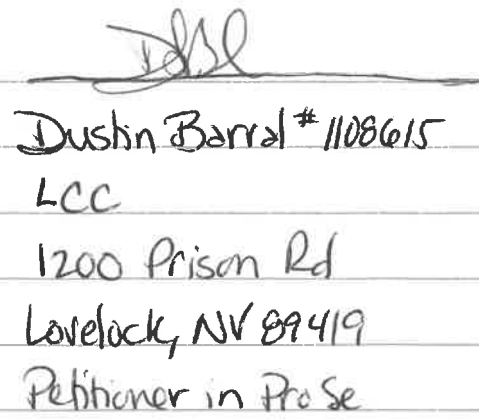 Dustin Barral #1108615
LCC
1200 Prison Rd
Lovelock, NV 89419
Petitioner in Pro Se